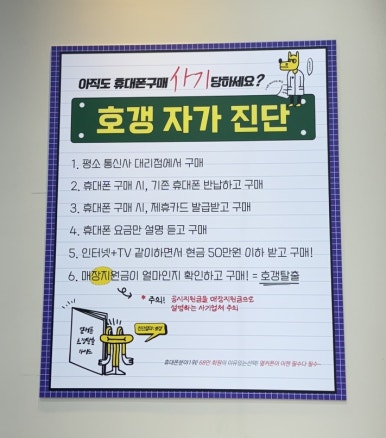 아직도 휴대폰구매 사기 당하세요?
호갱 자가 진단
1. 평소 통신사 대리점에서 구매
2. 휴대폰 구매 시, 기존 휴대폰 반납하고 구매
3. 휴대폰 구매 시, 제휴카드 발급받고 구매
4. 휴대폰 요금만 설명 듣고 구매
5. 인터넷+TV 같이하면서 현금 50만원 이하 받고 구매!
6. 매장지원금이 얼마인지 확인하고 구매! = 호갱탈출
* 주의! 공시지원금을 매장지원금으로
설명하는 사기업체 주의
호갱탈출
가이드
진단결과: 호갱
휴대폰분야1위! 68만 회원이 이유있는선택!